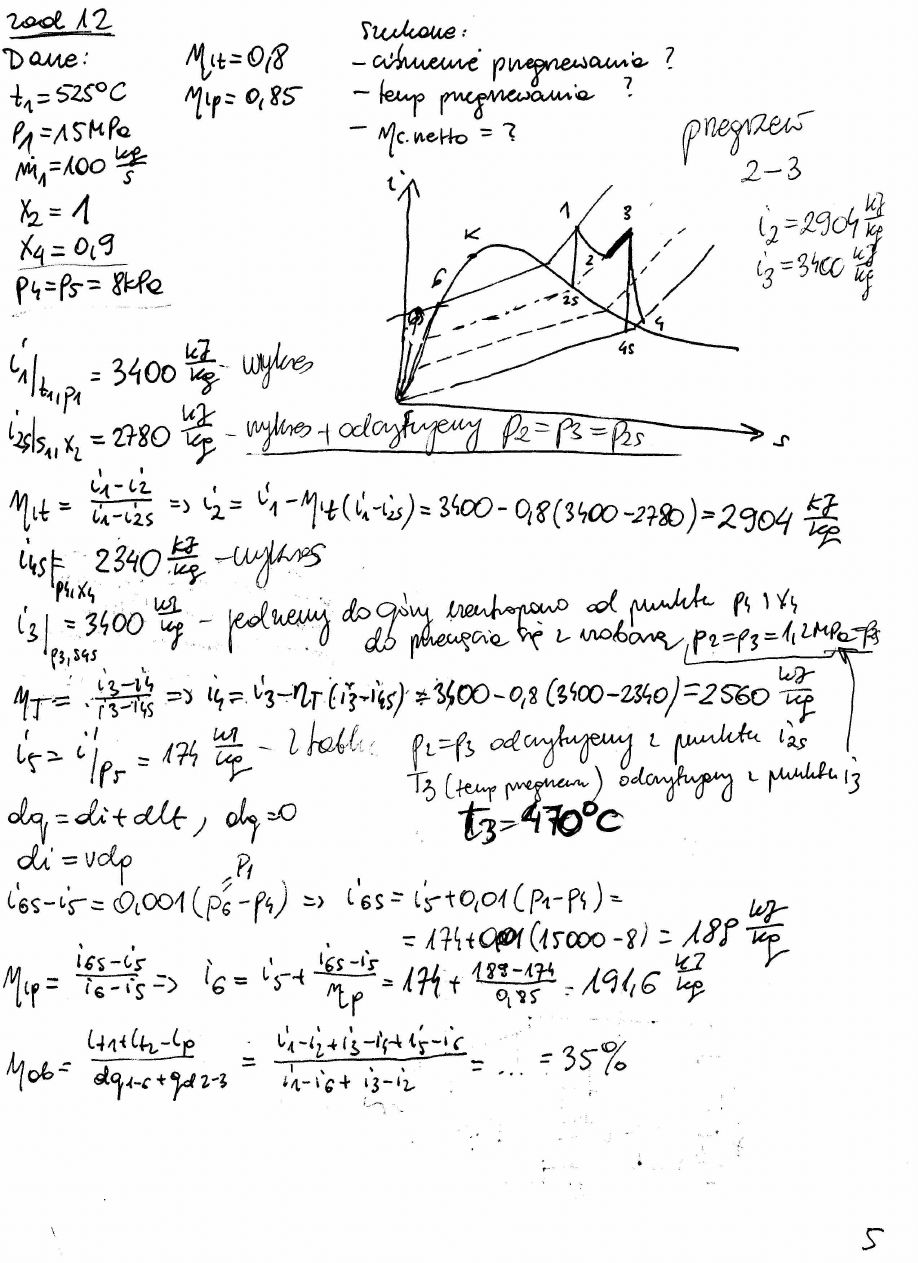 zad 12
Dane:
t₁=525°C
p₁=15MPa
ṁ₁=100 kg/s
x₂=1
x₄=0,9
p₄=p₅=8kPa
ηit=0,8
ηip=0,85
Szukane:
- ciśnienie przegrzewania ?
- temp przegrzewania ?
- ηc.netto = ?
przegrzew
2-3
i₂=2904 kJ/kg
i₃=3400 kJ/kg
i
K
1
3
2
6
2s
4
4s
s
i₁|t₁,p₁ = 3400 kJ/kg - wykres
i₂s|s₁,x₂ = 2780 kJ/kg - wykres + odczytujemy p₂=p₃=p₂s
ηit = (i₁-i₂)/(i₁-i₂s) => i₂ = i₁-ηit(i₁-i₂s) = 3400-0,8(3400-2780) = 2904 kJ/kg
i₄s|p₄,x₄ = 2340 kJ/kg - wykres
i₃|p₃,s₄s = 3400 kJ/kg - jedziemy do góry izentropowo od punktu p₄ i x₄
do przecięcia się z izobarą p₂=p₃=1,2MPa=p₃
ηT = (i₃-i₄)/(i₃-i₄s) => i₄ = i₃-ηT(i₃-i₄s) = 3400-0,8(3400-2340) = 2560 kJ/kg
i₅ = i'|p₅ = 174 kJ/kg - z tablic
p₂=p₃ odczytujemy z punktu i₂s
T₃ (temp przegrzew) odczytujemy z punktu i₃
t₃=470°C
dq = di+dlt, dq=0
di = vdp
p₁
i₆s-i₅ = 0,001(p₆-p₄) => i₆s = i₅+0,01(p₁-p₄) =
= 174+0,001(15000-8) = 189 kJ/kg
ηip = (i₆s-i₅)/(i₆-i₅) => i₆ = i₅ + (i₆s-i₅)/ηp = 174 + (189-174)/0,85 = 191,6 kJ/kg
ηob = (lt₁+lt₂-lp)/(dq₁₋₆+qd₂₋₃) = (i₁-i₂+i₃-i₄+i₅-i₆)/(i₁-i₆+i₃-i₂) = ... = 35%
5